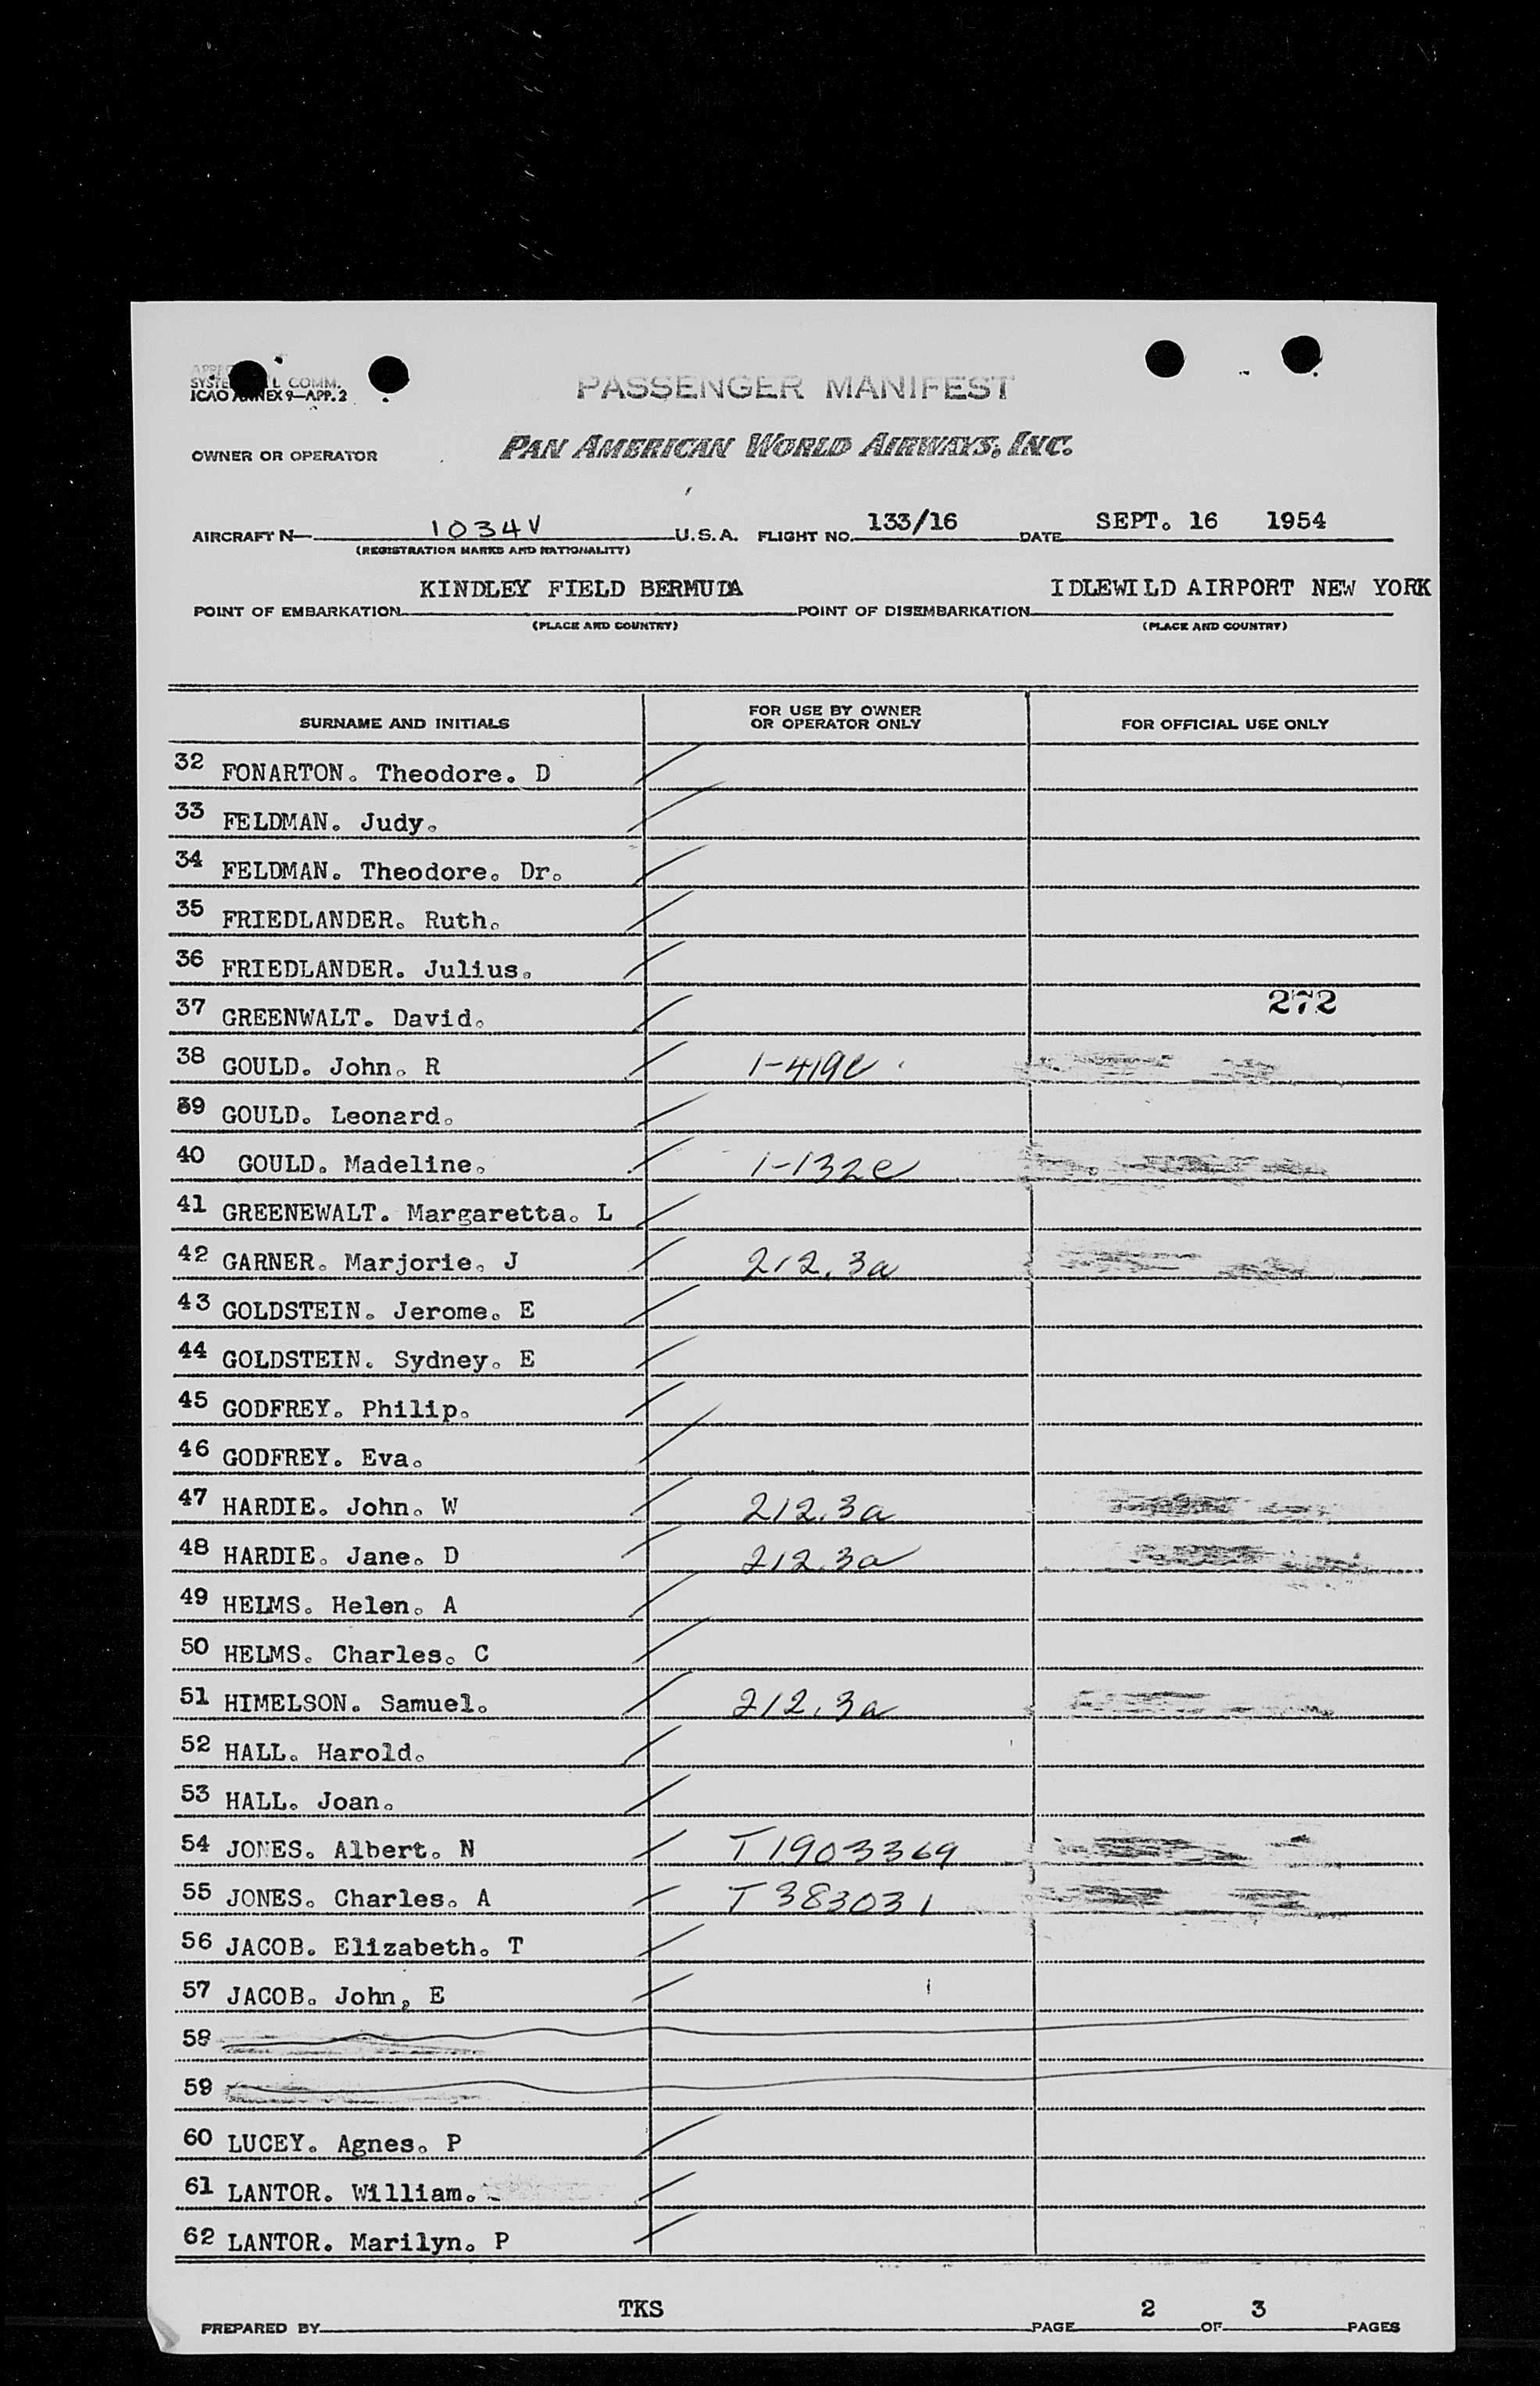 SYSTE L COMM.
ICAO ANNEX 9—APP. 2
PASSENGER MANIFEST
OWNER OR OPERATOR PAN AMERICAN WORLD AIRWAYS, INC.
AIRCRAFT N— 1034V U.S.A. FLIGHT NO. 133/16 DATE SEPT. 16 1954
(REGISTRATION MARKS AND NATIONALITY)
KINDLEY FIELD BERMUDA IDLEWILD AIRPORT NEW YORK
POINT OF EMBARKATION POINT OF DISEMBARKATION
(PLACE AND COUNTRY) (PLACE AND COUNTRY)
SURNAME AND INITIALS FOR USE BY OWNER OR OPERATOR ONLY FOR OFFICIAL USE ONLY
32 FONARTON. Theodore. D
33 FELDMAN. Judy.
34 FELDMAN. Theodore. Dr.
35 FRIEDLANDER. Ruth.
36 FRIEDLANDER. Julius.
37 GREENWALT. David. 272
38 GOULD. John. R 1-419e
39 GOULD. Leonard.
40 GOULD. Madeline. 1-132e
41 GREENEWALT. Margaretta. L
42 GARNER. Marjorie. J 212.3a
43 GOLDSTEIN. Jerome. E
44 GOLDSTEIN. Sydney. E
45 GODFREY. Philip.
46 GODFREY. Eva.
47 HARDIE. John. W 212.3a
48 HARDIE. Jane. D 212.3a
49 HELMS. Helen. A
50 HELMS. Charles. C
51 HIMELSON. Samuel. 212.3a
52 HALL. Harold.
53 HALL. Joan.
54 JONES. Albert. N T1903369
55 JONES. Charles. A T383031
56 JACOB. Elizabeth. T
57 JACOB. John, E
58
59
60 LUCEY. Agnes. P
61 LANTOR. William.
62 LANTOR. Marilyn. P
PREPARED BY TKS PAGE 2 OF 3 PAGES